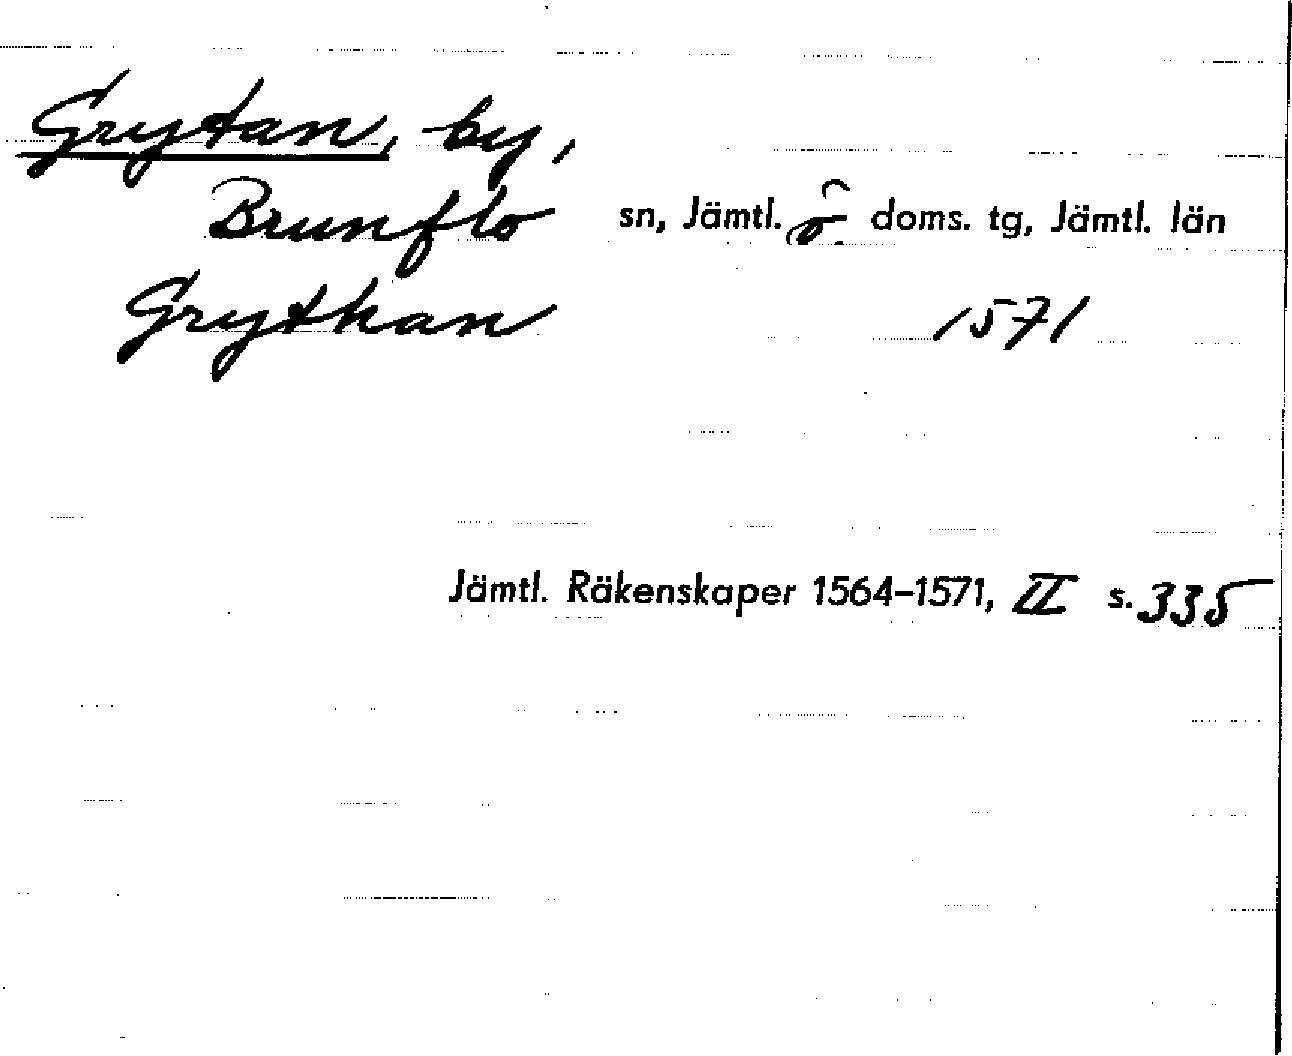 Grytan, by,
Brunflo sn, Jämtl. ö. doms. tg, Jämtl. län
Grythan 1571
Jämtl. Räkenskaper 1564–1571, II s. 335